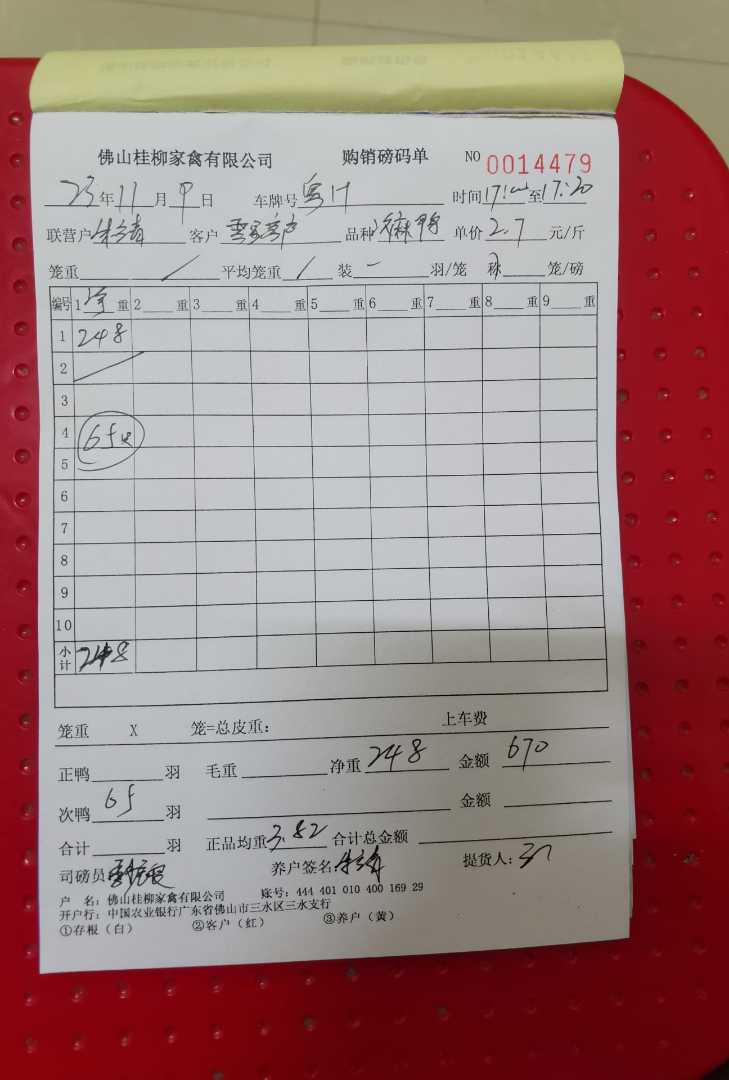 佛山桂柳家禽有限公司 购销磅码单 NO 0014479
23年11月9日 车牌号 粤 时间17:00至17:20
联营户 客户 品种 麻鸭 单价2.7元/斤
笼重 / 平均笼重 / 装 一 羽/笼 称 笼/磅
编号 1 重 2 重 3 重 4 重 5 重 6 重 7 重 8 重 9 重
1 248
2
3
4 65只
5
6
7
8
9
10
小计 248
笼重 X 笼=总皮重: 上车费
正鸭 羽 毛重 净重 248 金额 670
次鸭 65 羽 金额
合计 羽 正品均重 3.82 合计总金额
司磅员 养户签名: 提货人:
户 名: 佛山桂柳家禽有限公司 账号: 444 401 010 400 169 29
开户行: 中国农业银行广东省佛山市三水区三水支行
①存根(白) ②客户(红) ③养户(黄)